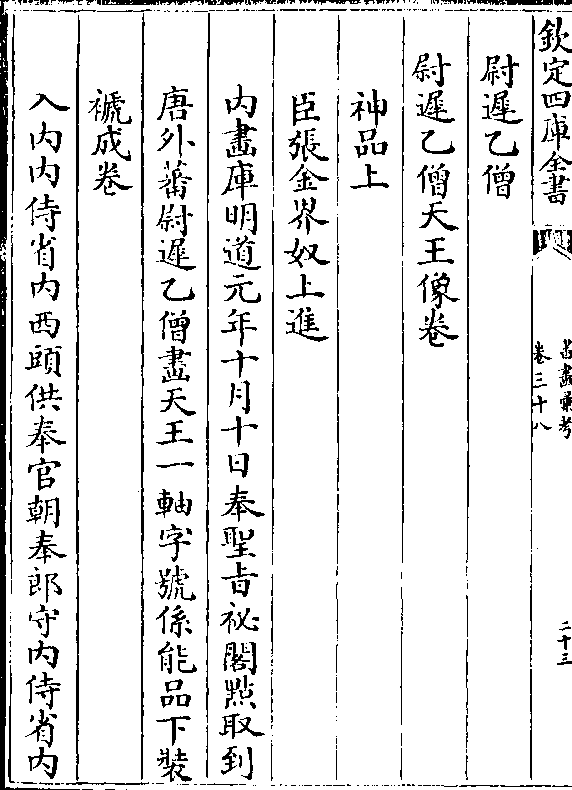 欽定四庫全書
書畫彙考
卷三十八
二十三
尉遲乙僧
尉遲乙僧天王像卷
神品上
臣張金界奴上進
内畫庫明道元年十月十日奉聖旨祕閣㸃取到
唐外蕃尉遲乙僧畫天王一軸字號係能品下裝
褫成卷
入内内侍省内西頭供奉官朝奉郎守内侍省内